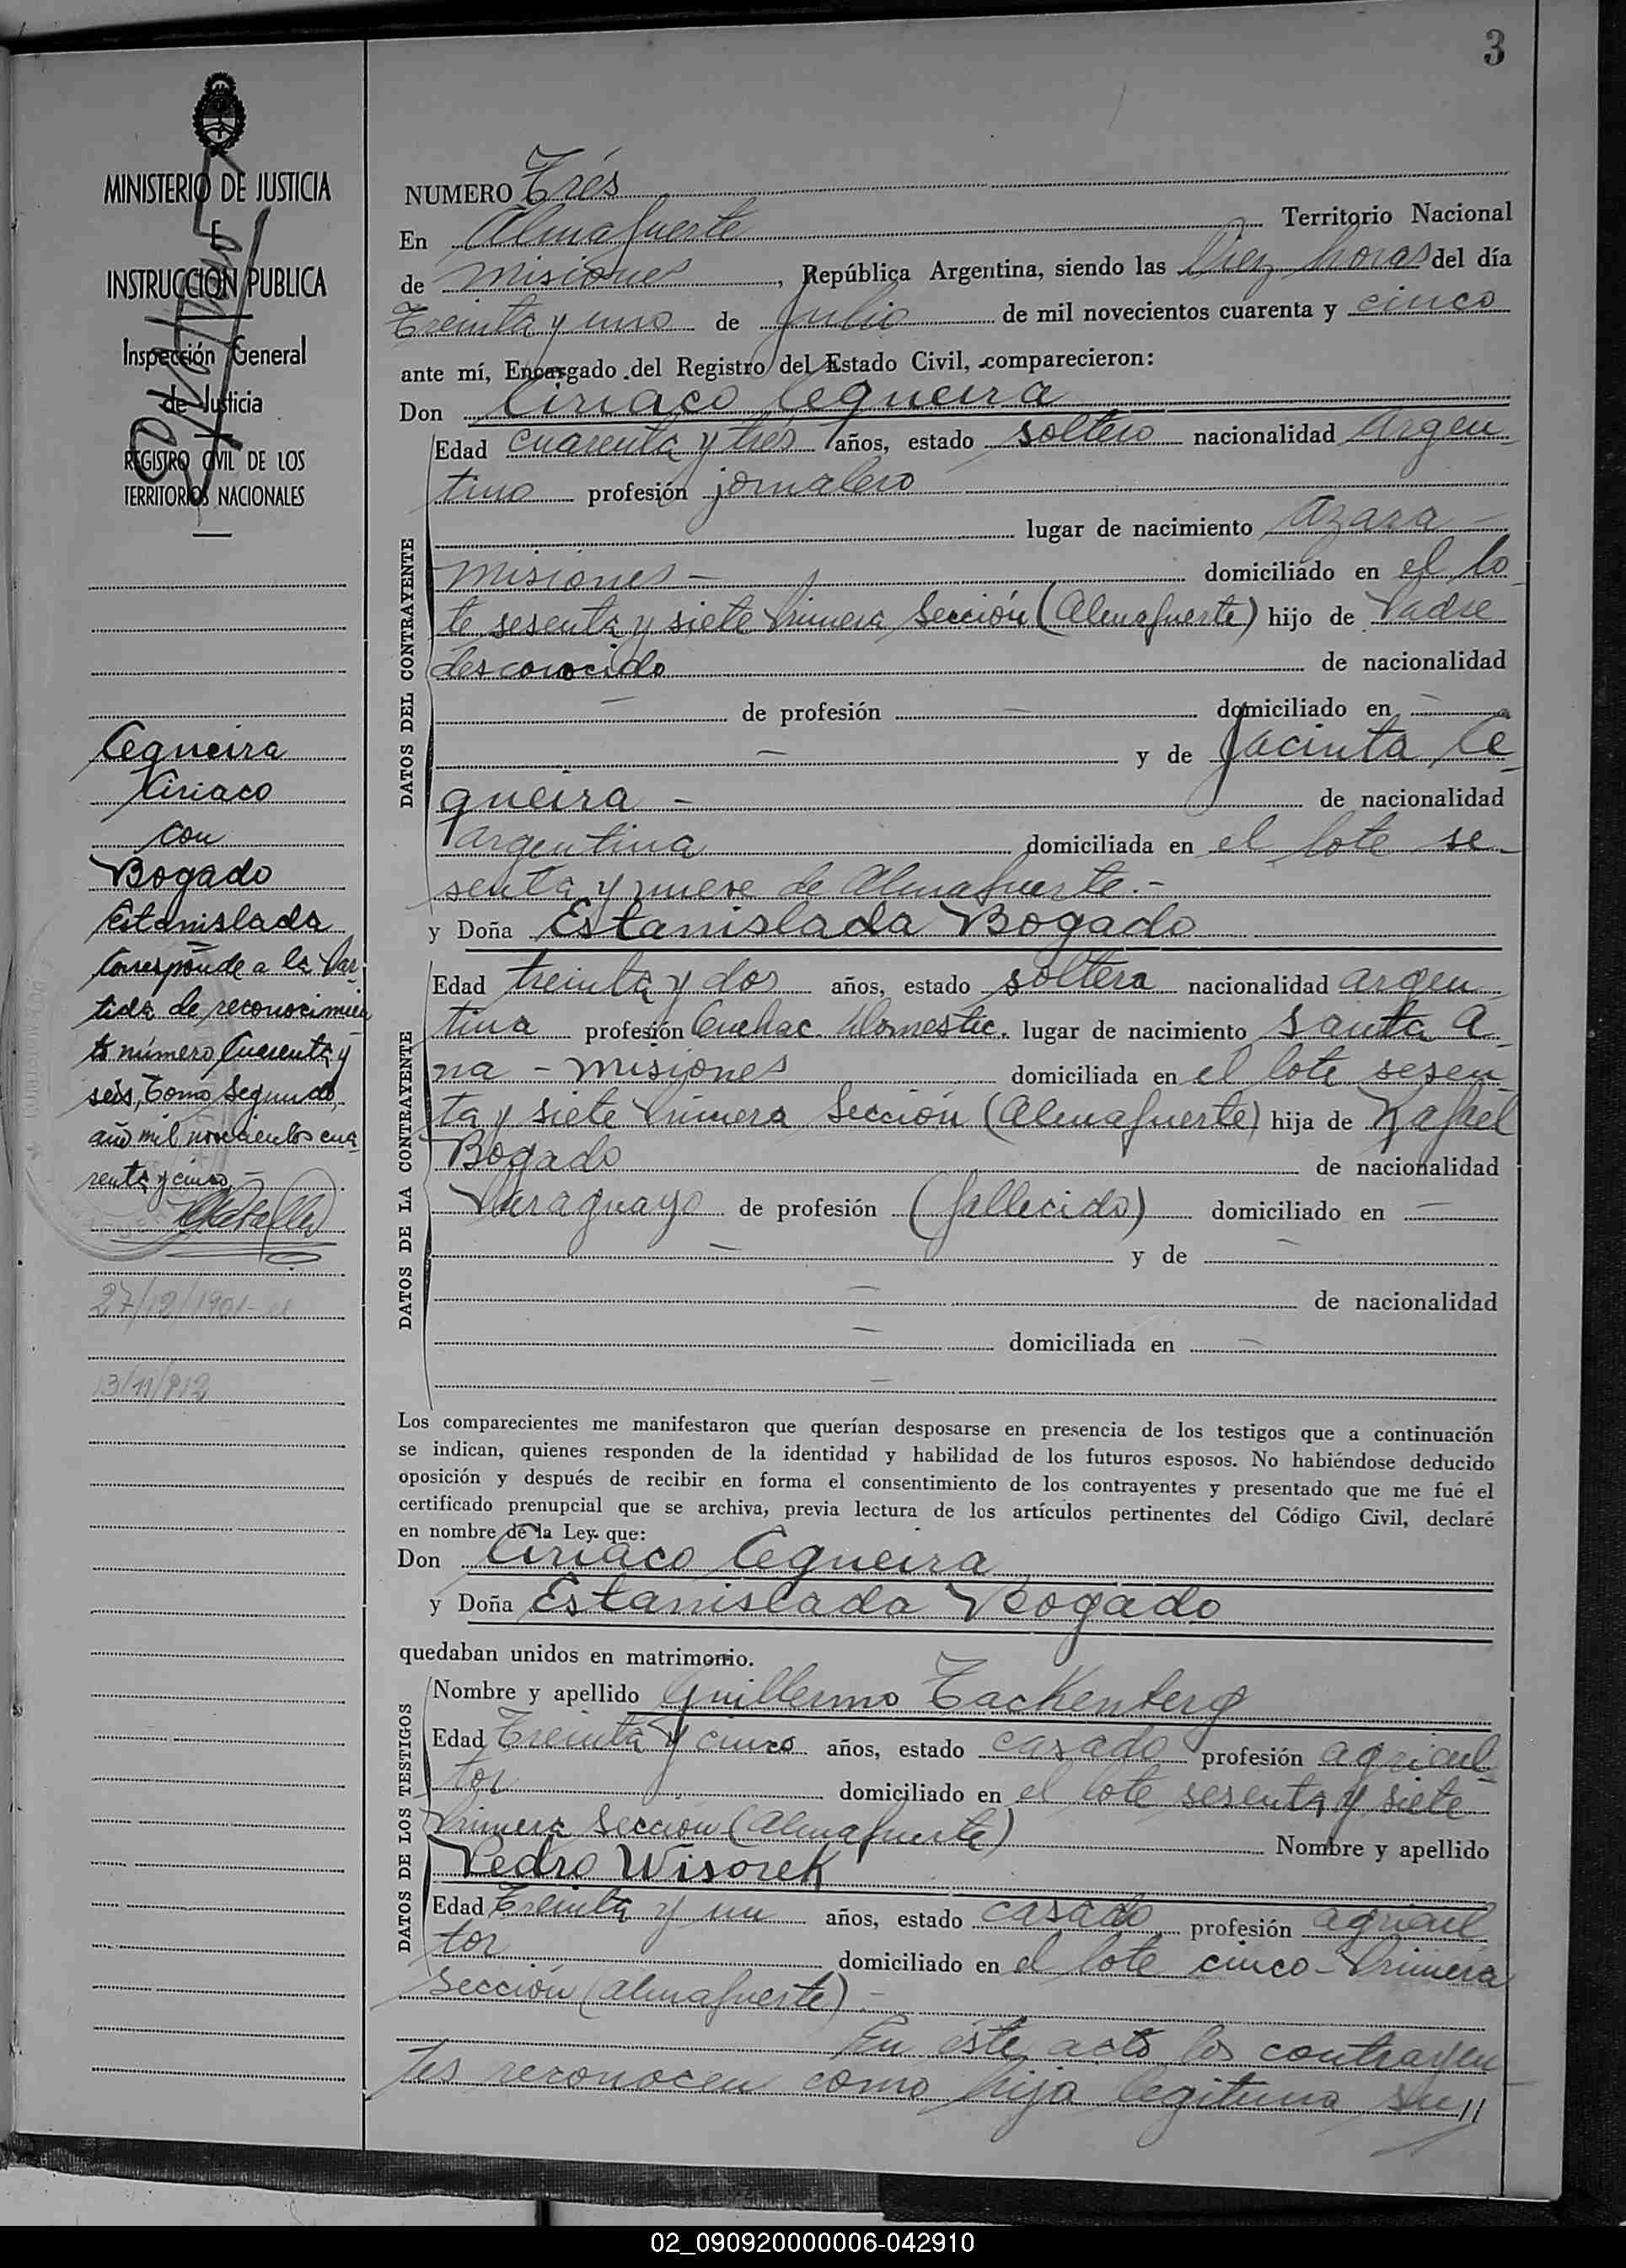 3
MINISTERIO DE JUSTICIA
E
INSTRUCCION PUBLICA
Inspección General
de Justicia
REGISTRO CIVIL DE LOS
TERRITORIOS NACIONALES
Cequeira
Ciriaco
con
Bogado
Estanislada
Corresponde a la Par
tida de reconocimien
to número Cuarenta y
seis, Tomo Segundo,
año mil novecientos cua
renta y cinco.-
27/12/1901
13/11/912
NUMERO Trés
En Almafuerte Territorio Nacional
de Misiones, República Argentina, siendo las Diez horas del día
Treinta y uno de Julio de mil novecientos cuarenta y cinco
ante mí, Encargado del Registro del Estado Civil, comparecieron:
Don Ciriaco Cequeira
DATOS DEL CONTRAYENTE
Edad cuarenta y trés años, estado soltero nacionalidad Argen
tino profesión jornalero
lugar de nacimiento Azara -
Misiones - domiciliado en el lo
te sesenta y siete Primera Sección (Almafuerte) hijo de Padre
desconocido de nacionalidad
— de profesión — domiciliado en —
— y de Jacinta Ce
queira - de nacionalidad
Argentina domiciliada en el lote se
senta y nueve de Almafuerte.-
y Doña Estanislada Bogado
DATOS DE LA CONTRAYENTE
Edad treinta y dos años, estado soltera nacionalidad argen
tina profesión Quehac. Domestic. lugar de nacimiento Santa A
na - Misiones domiciliada en el lote sesen
ta y siete Primera Sección (Almafuerte) hija de Rafael
Bogado de nacionalidad
Paraguayo de profesión (fallecido) domiciliado en —
— y de —
— de nacionalidad
— domiciliada en —
—
Los comparecientes me manifestaron que querían desposarse en presencia de los testigos que a continuación
se indican, quienes responden de la identidad y habilidad de los futuros esposos. No habiéndose deducido
oposición y después de recibir en forma el consentimiento de los contrayentes y presentado que me fué el
certificado prenupcial que se archiva, previa lectura de los artículos pertinentes del Código Civil, declaré
en nombre de la Ley que:
Don Ciriaco Cequeira
y Doña Estanislada Bogado
quedaban unidos en matrimonio.
DATOS DE LOS TESTIGOS
Nombre y apellido Guillermo Tackenberg
Edad Treinta y cinco años, estado casado profesión agricul
tor domiciliado en el lote sesenta y siete
Primera Sección (Almafuerte) Nombre y apellido
Pedro Wisorek
Edad Treinta y un años, estado casado profesión agricul
tor domiciliado en el lote cinco - Primera
Sección (Almafuerte) -
En éste acto los contrayen
tes reconocen como hija legitima su //
02_090920000006-042910